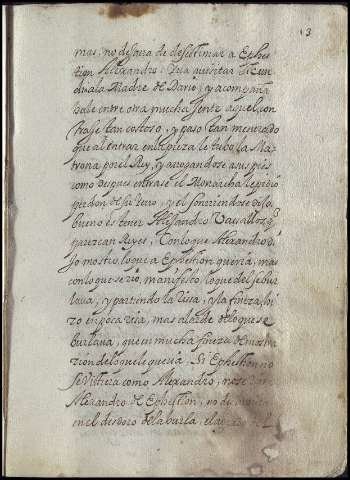 13
mas, no dejara de desestimar a Ephes-
tion Alexandro: Yba a visitar
la Madre de Dario; y acompaña
bale entre otra mucha gente aquel con
traje tan costoso, y paso tan mesurado
que al entrar en la pieza le tubo la Ma-
trona por el Rey, y arrojandose a sus pies
como despues entrase el Monarcha le pidio
perdon de su yerro, y el sonriendose dijo
bueno es tener Alejandro Vasallos q
parezcan Reyes, Con lo que Alexandro di
jo mostro, lo que a Ephestion queria, mas
con lo que se rio, manifesto, lo que del se bur
laua, y partiendo la risa, y la fineza, hi
zo en poca risa, mas alarde de lo que se
burlaua, que en mucha fineza demostra
zion de lo que le queria. Si Ephestion no
se vistiera como Alexandro, no se
Alexandro de Ephestion, no de
en el desdoro de la burla, el